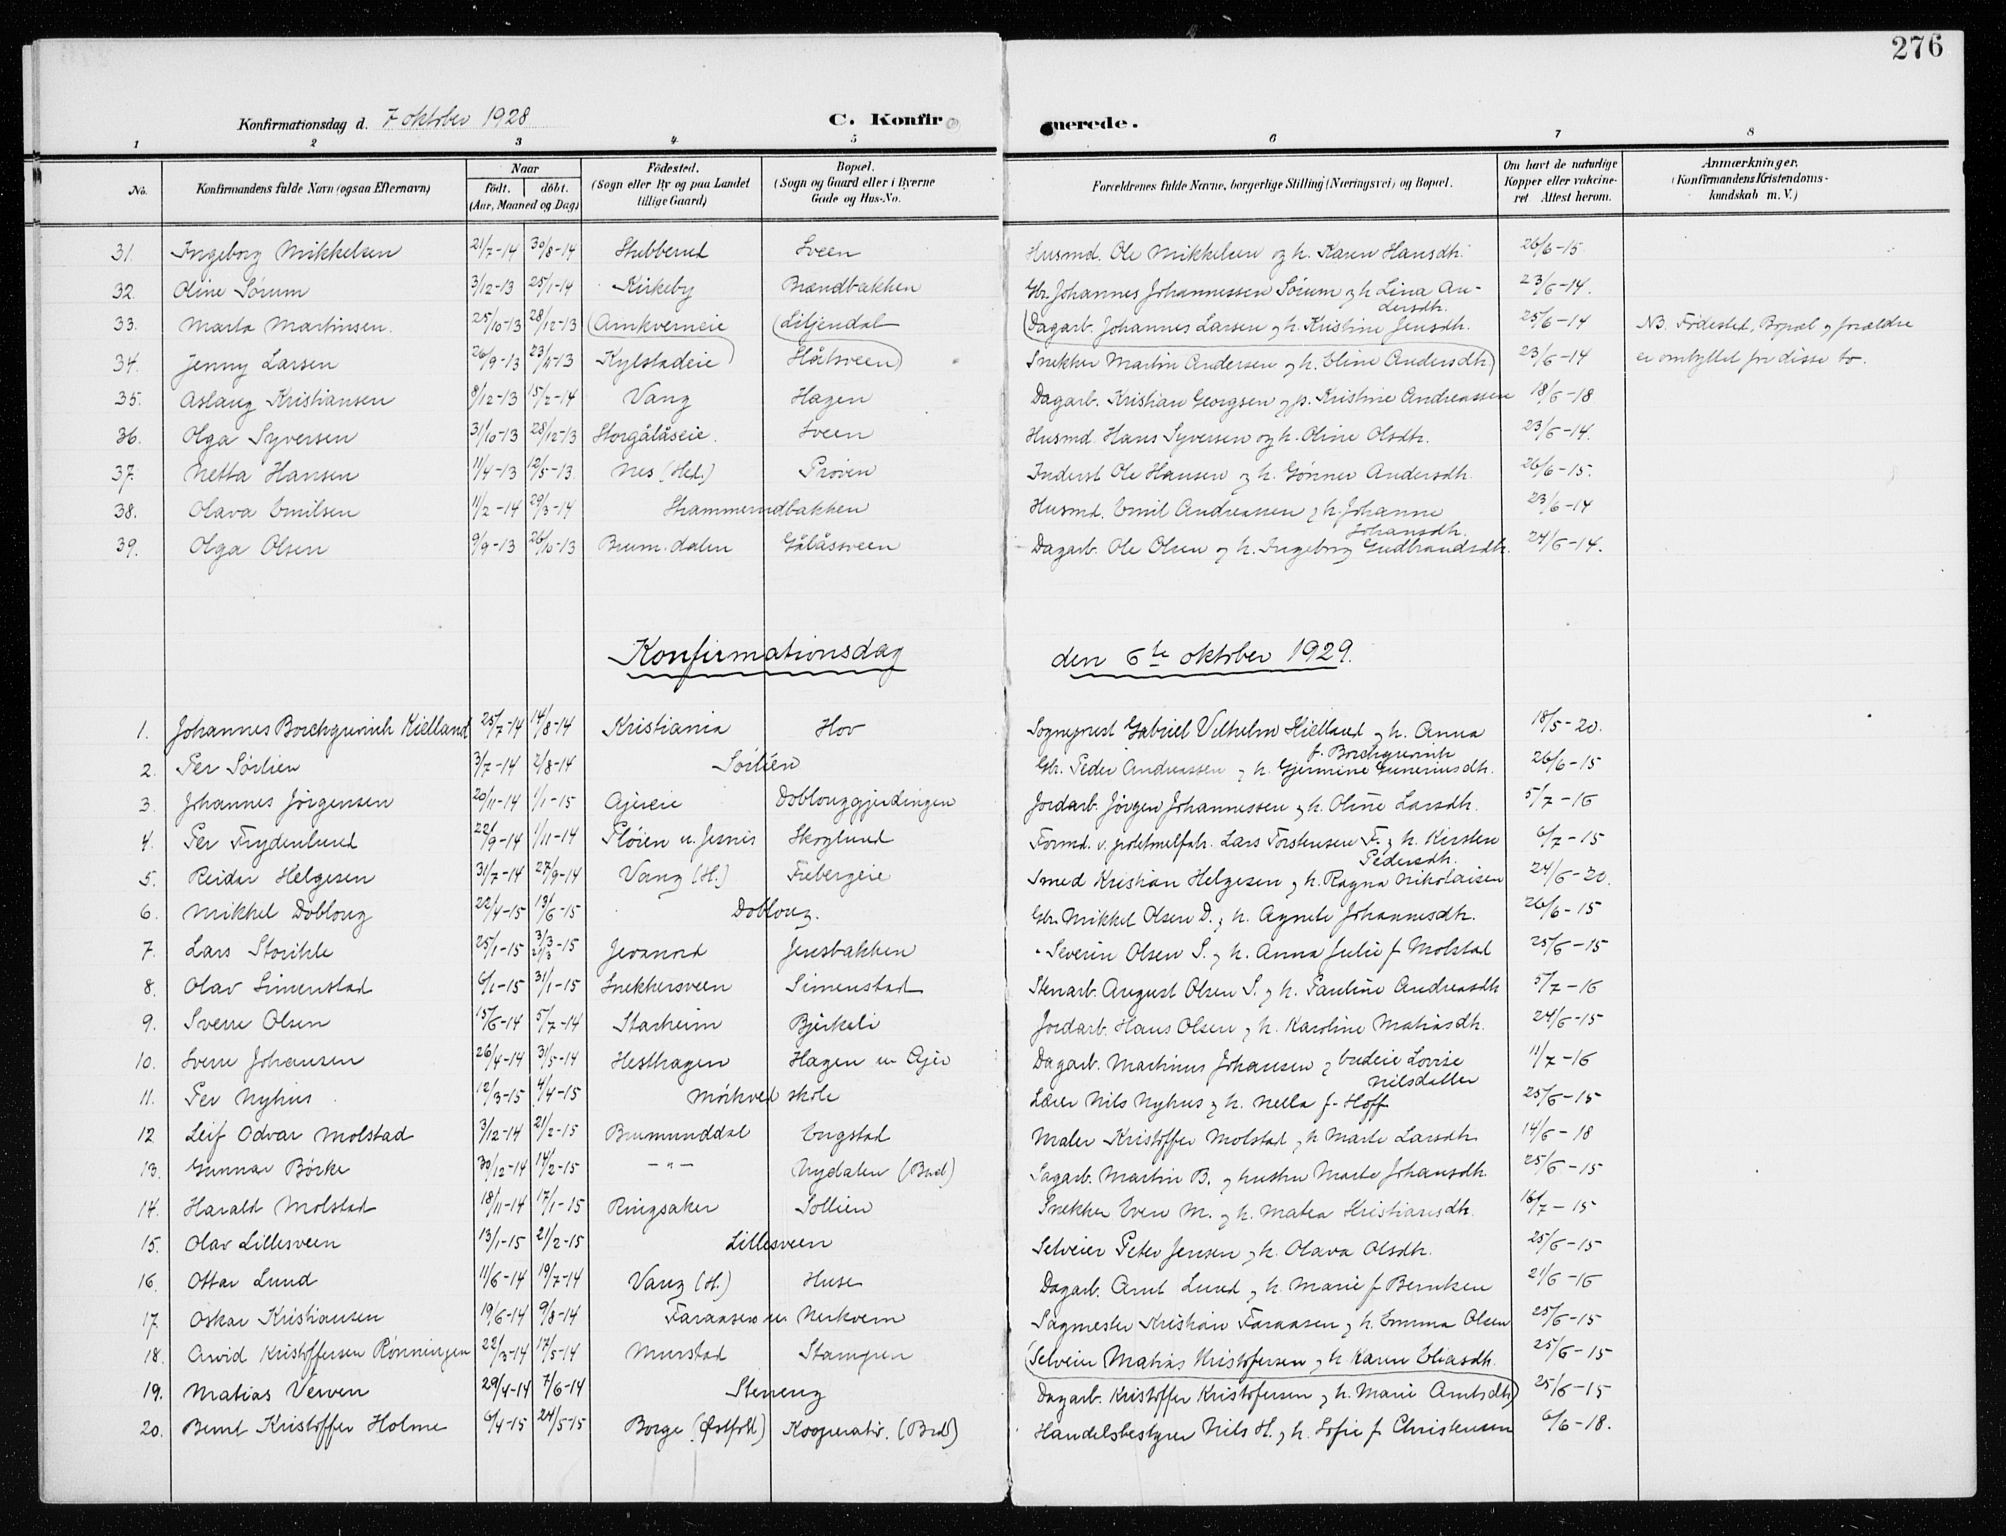 276
Konfirmationsdag d. 7 oktober 1928 C. Konfirmerede.
1 2 3 4 5 6 7 8
No. Konfirmandens fulde Navn (ogsaa Efternavn) Naar født. døbt. (Aar, Maaned og Dag) Fødested. (Sogn eller By og paa Landet tillige Gaard) Bopæl. (Sogn og Gaard eller i Byerne Gade og Hus-No. Forældrenes fulde Navne, borgerlige Stilling (Næringsvei) og Bopæl. Om havt de naturlige Kopper eller vakcineret Attest herom. Anmærkninger. (Konfirmandens Kristendomskundskab m. V.)
31. Ingeborg Mikkelsen 21/7-14 30/8-14 Stubberud Sveen Husmd. Ole Mikkelsen og h. Karen Hansdh. 26/6-15
32. Oline Sørum 3/12-13 25/1-14 Kirkeby Brændbakken Gbr. Johannes Johannessen Sørum og h. Lina Andersdh. 23/6-14.
33. Marta Martinsen. 25/10-13 28/12-13 (Amkverneie (Liljendal (Dagarb. Johannes Larsen og h. Kristine Jensdh. 25/6-14 NB. Fødested, Bopæl og forældre
34. Jenny Larsen 26/9-13 23/-13 Kylstadeie) Håtsveen) Snekker Martin Andersen og h. Eline Andersdh.) 23/6-14 er ombyttet for disse to.
35. Aslaug Kristiansen 8/12-13 15/2-14 Vang Hagen Dagarb. Kristian Georgsen og p. Kristine Andreassen 18/6-18
36. Olga Syversen 31/10-13 28/12-13 Storgålåseie. Sveen Husmd. Hans Syversen og h. Oline Olsdh. 23/6-14.
37. Netta Hansen 11/4-13 12/5-13 Nes (Hed.) Prøven Inderst Ole Hansen og h. Gønner Andersdh. 26/6-15.
38. Olava Emilsen 11/2-14 29/3-14 Skammerudbakken Husmd. Emil Andreassen og h. Johanne Johansdh. 23/6-14
39. Olga Olsen 9/9-13 26/10-13 Brum.dalen Gålåsveen Dagarb. Ole Olsen og h. Ingeborg Gudbrandsdh. 24/6-14.
Konfirmationsdag den 6te oktober 1929.
1. Johannes Borchgrevink Kielland 25/7-14 14/8-14 Kristiania Hov Sogneprest Gabriel Vilhelm Kielland og h. Anna f. Borchgrevink 18/5-20.
2. Per Sørlien 3/7-14 2/8-14 Sørlien Gbr. Peder Andreassen og h. Gjermine Guneriusdh. 26/6-15
3. Johannes Jørgensen 20/11-14 1/1-15 Ajereie Doblouggjerdingen Jordarb. Jørgen Johannessen og h. Oline Larsdh. 5/7-16
4. Per Frydenlund 22/9-14 1/11-14 Pløien u. Jesnes Skoglund Formd. v. potetmelfabr. Lars Torstensen F. og h. Kersten Pedersdh. 6/7-15
5. Reidar Helgesen 31/7-14 27/9-14 Vang (H.) Frebergeie Smed Kristian Helgesen og h. Ragna Nikolaisen 24/6-20.
6. Mikkel Dobloug 22/4-15 13/6-15 Dobloug. Gbr. Mikkel Olsen D. og h. Agnete Johannesdh. 26/6-15
7. Lars Storihle 25/1-15 3/3 21/3-15 Jevanord Jensbakken Severin Olsen S. og h. Anna Julie f. Molstad 25/6-15
8. Olav Simenstad 6/1-15 31/1-15 Snekkersveen Simenstad Stenarb. August Olsen S. og h. Pauline Andreasdh 5/7-16
9. Sverre Olsen 15/6-14 5/7-14 Starheim Bjerkeli Jordarb. Hans Olsen og h. Karoline Matiasdh. 24/6-15
10. Sverre Johansen 26/4-14 31/5-14 Hesthagen Hagen u Ajer Dagarb. Martinus Johansen og budeie Lovise Nilsdatter 11/7-16
11. Per Nyhus 12/3-15 4/4-15 Mørkved skole Lærer Nils Nyhus og h. Nella f. Hoff 25/6-15
12 Leif Odvar Molstad 3/12-14 21/2-15 Brumunddal Engstad Maler Kristoffer Molstad og h Marte Larsdh 14/6-18
13. Gunnar Börke 30/12-14 14/2-15 — " — Nydalen (Brd) Sagarb. Martin B. og hustru Marte Johansdh. 25/6-15
14. Harald Molstad 18/11-14 17/1-15 Ringsaker Sollien Snekker Even M. og h. Matea Kristiansdh. 16/7-15
15. Olav Lillesveen 13/1-15 21/2-15 Lillesveen Selveier Peter Jensen og h. Olava Olsdh. 25/6-15
16. Ottar Lund 11/6-14 19/7-14 Vang (H.) Huse Dagarb. Arnt Lund og h. Marie f Berntsen 21/6-16
17. Oskar Kristiansen 19/6-14 9/8-14 Faraasen u Nerkvern Sagmester Kristian Faraasen og h. Emma Olsen 25/6-15
18. Arvid Kristoffersen Rønningen 22/3-14 17/5-14 Murstad Stampen (Selveier Matias Kristofersen og h Karen Eliasdh. 25/6-15
19. Matias Verven 29/4-14 7/6-14 Steneng Dagarb. Kristoffer Kristofersen og h. Marie Arntsdh) 25/6-15
20. Bernt Kristoffer Holme 6/4-15 24/5-15 Borge (Østfold) Kooperativ. (Brd) Handelsbestyrer Nils H. og h. Sofie f Christensen 6/6-18.